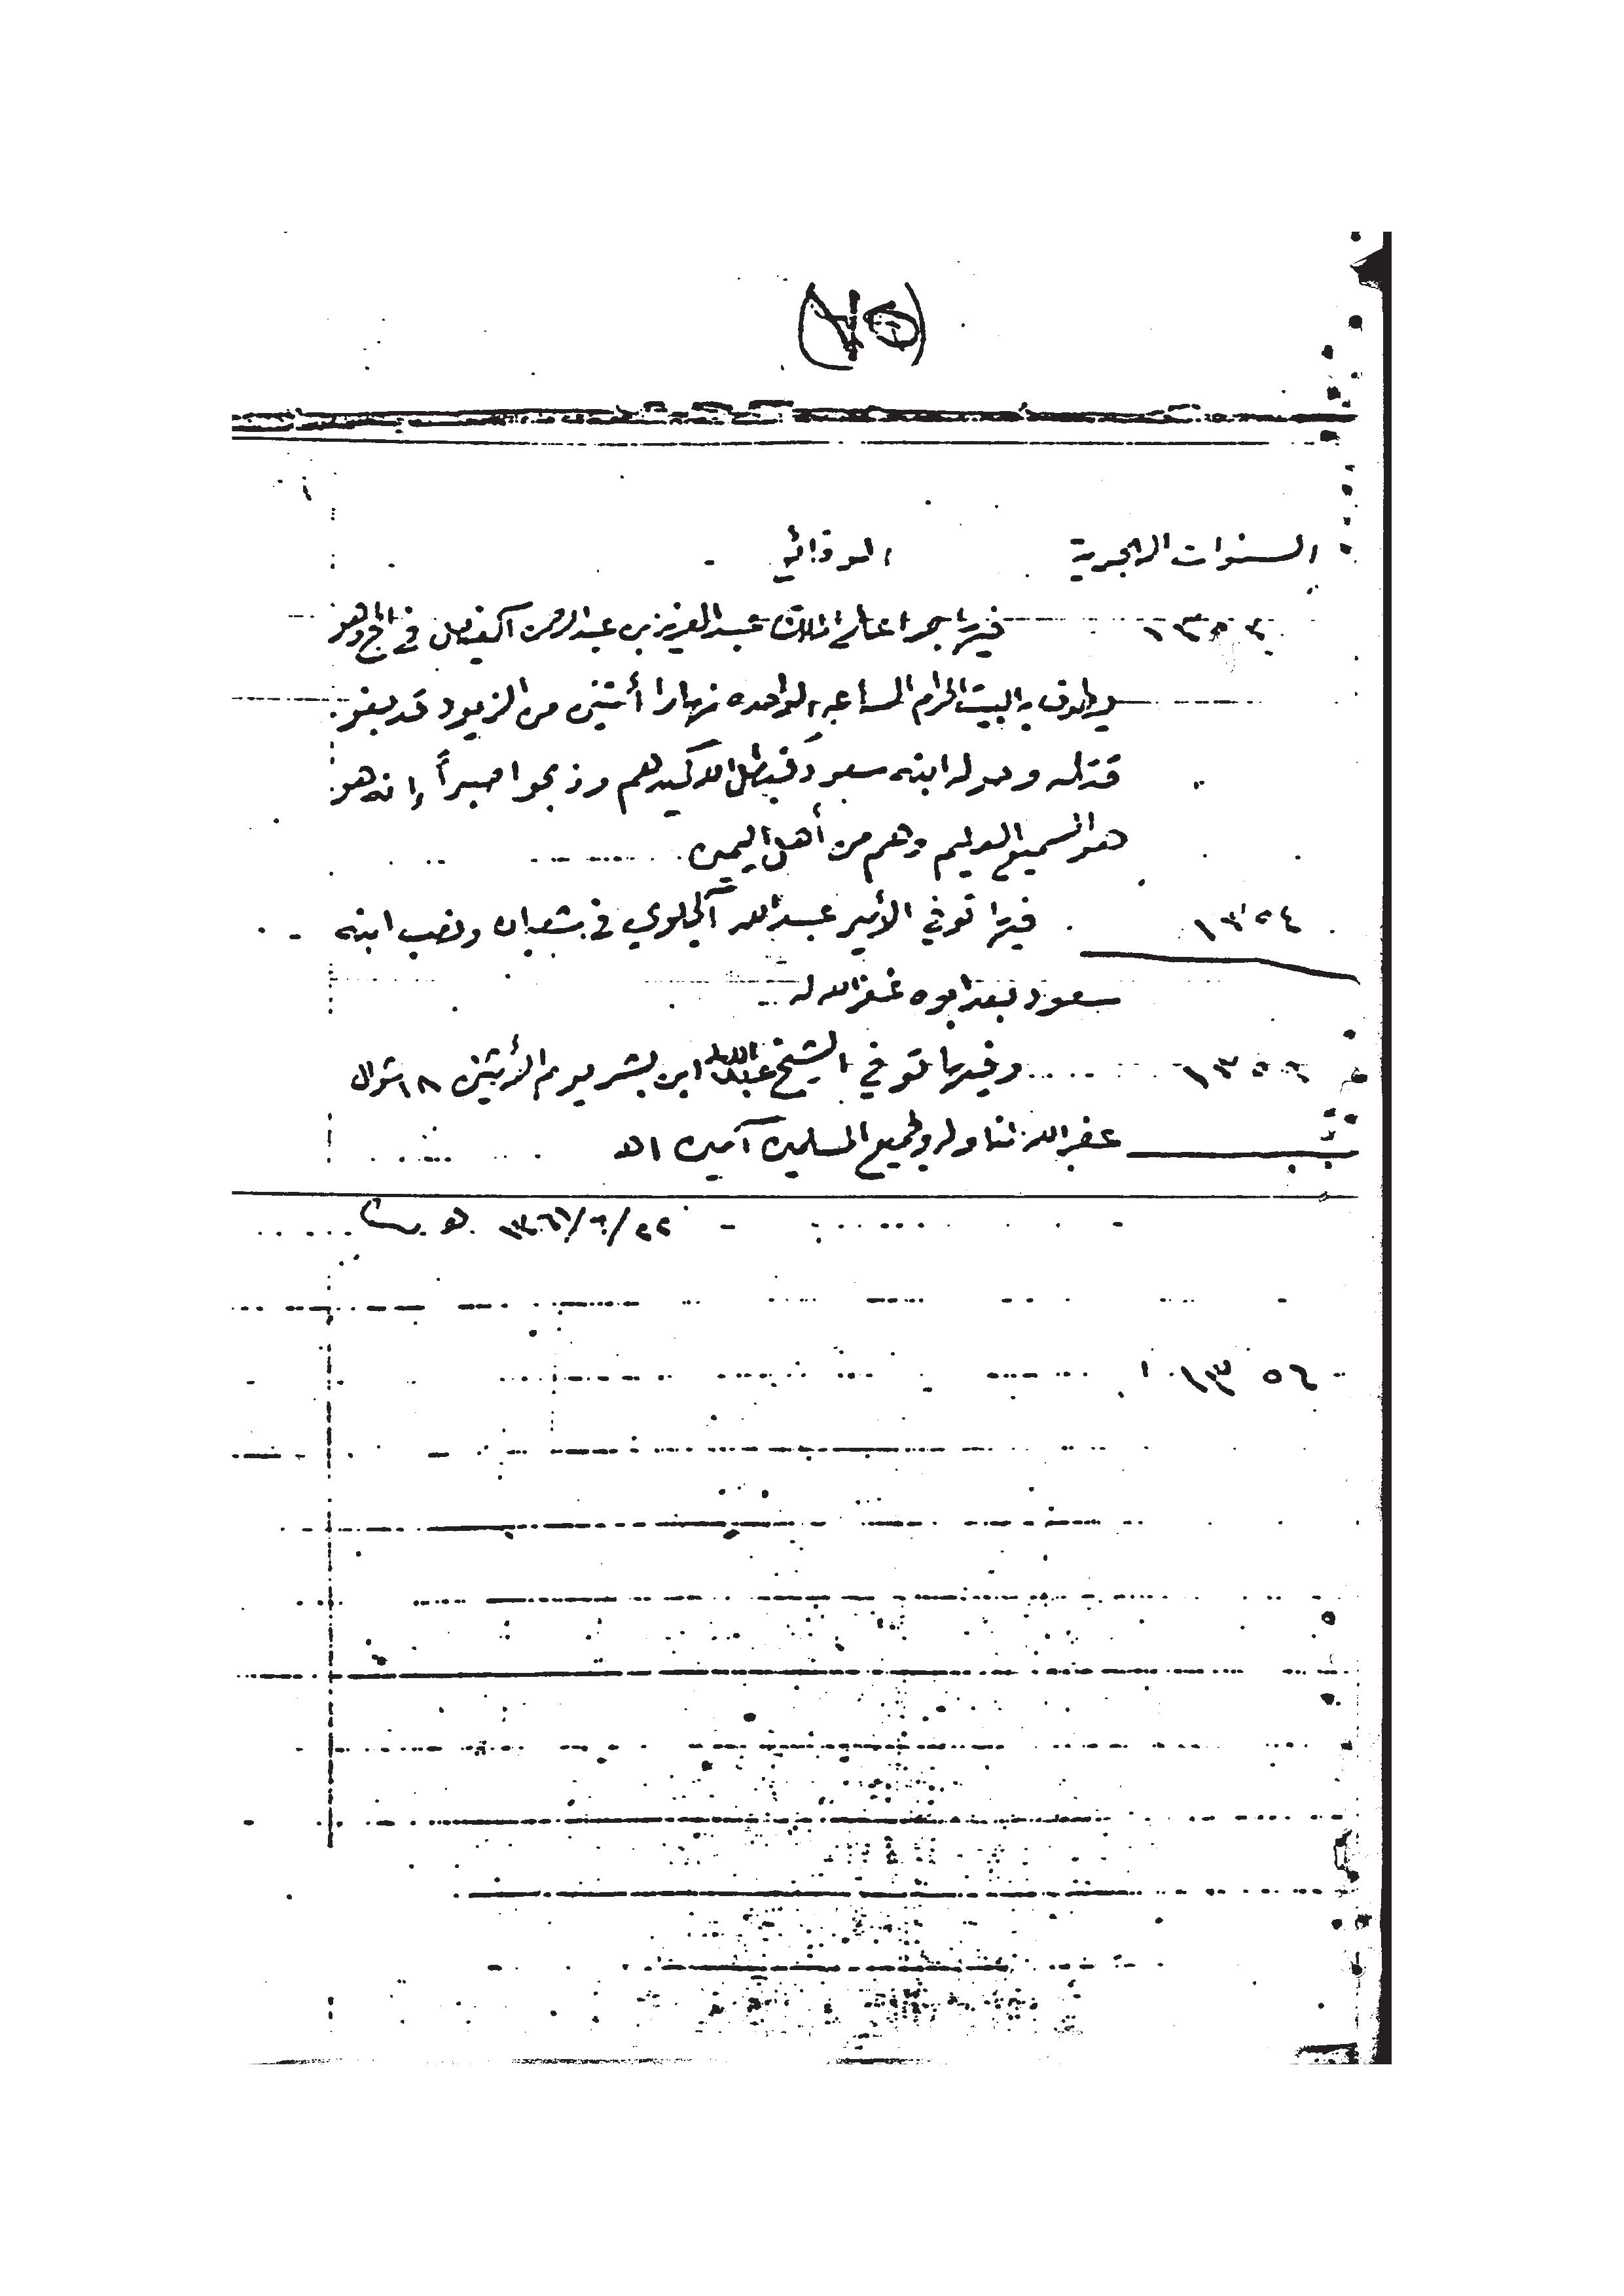 السنوات الهجرية الوقائع
١٣٥٣ فيها جرا على الملك عبد العزيز بن عبد الرحمن آل فيصل في الحج وهو
يطوف بالبيت الحرام الساعه الواحده نهارا أثنين من الزيود قد بغو
قتله وحوله ابنه سعود فبطل الله كيدهم وذبحوا صبراً إنه هو
هو السميع العليم وهم من أهل اليمن
١٣٥٤ فيها توفي الأمير عبد الله آل جلوي في شعبان ونصب ابنه
سعود بعد ابوه غفر الله له
١٣٥٩ وفيها توفي الشيخ عبد الله ابن بشر يوم الأثنين ١٨ شوال
غفر الله لنا وله ولجميع المسلمين آمين اهـ
٢٢/٩/١٣٦١ هـ
١٣ ٥٤